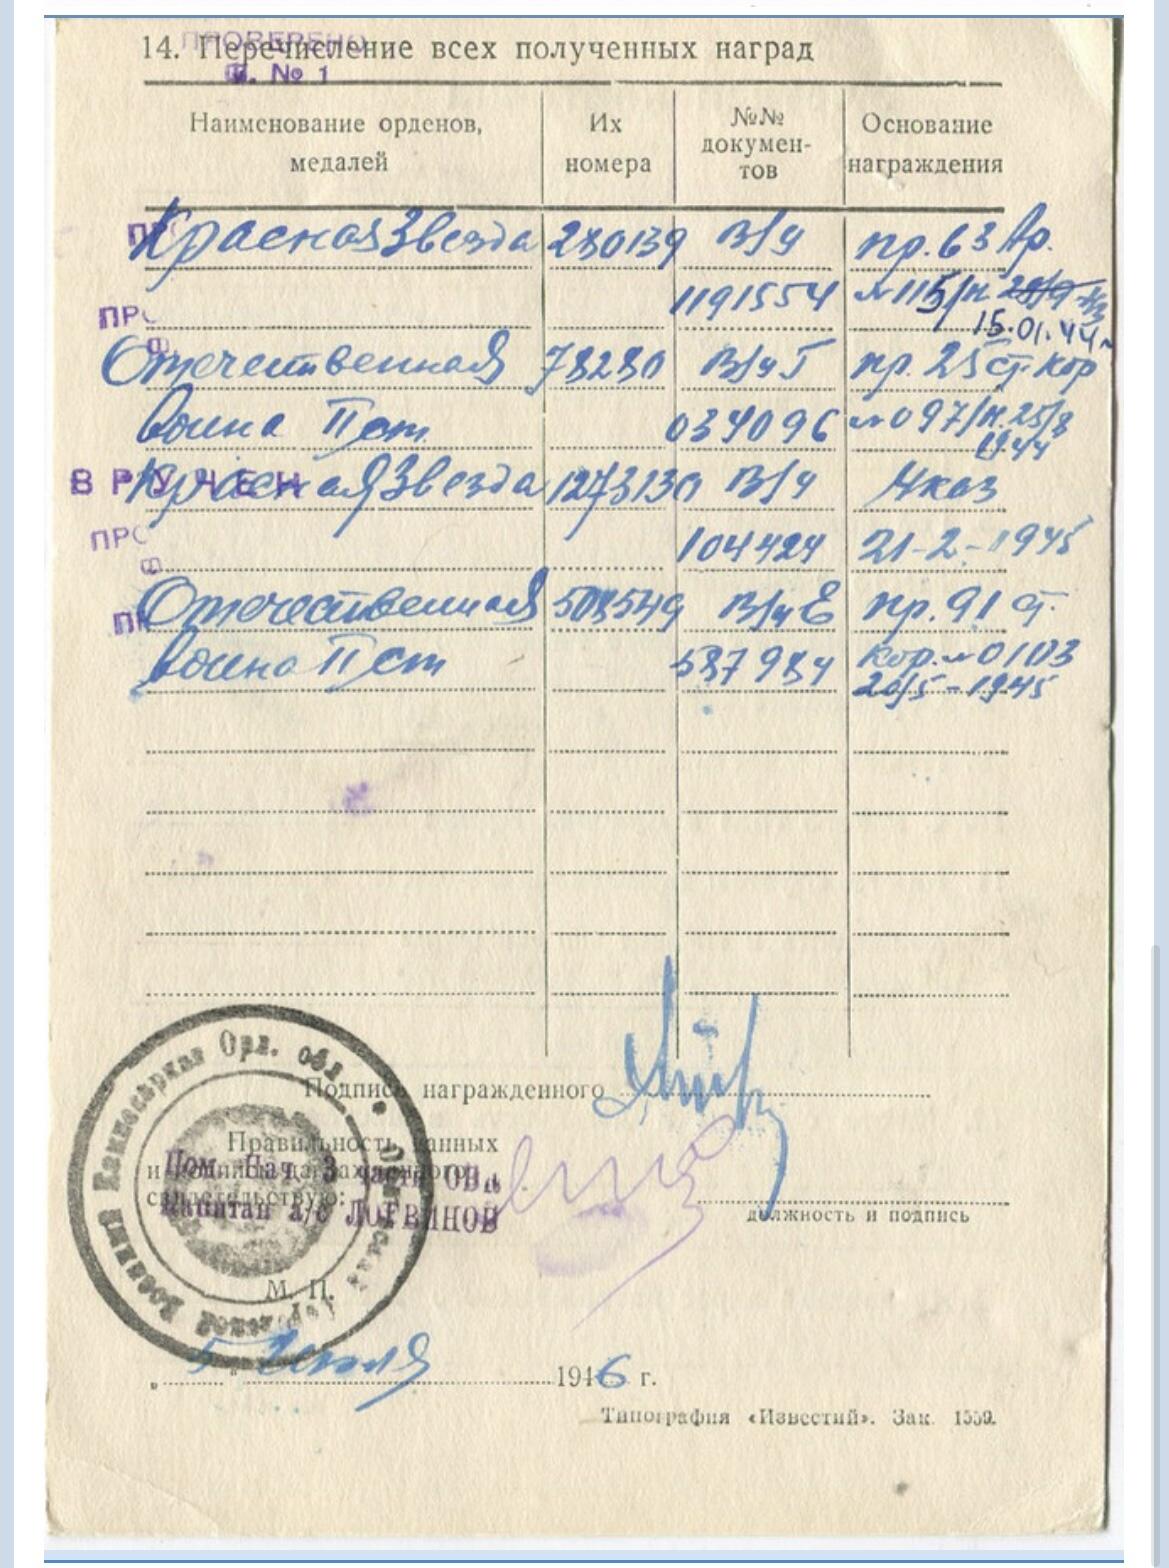 ПРОВЕРЕНО
14. Перечисление всех полученных наград
Ф. № 1
Наименование орденов, медалей
Их номера
№№ докумен-тов
Основание награждения
Красная Звезда 280139 В/ч пр. 63 Ар.
ПРО 1191554 №115/н
15.01.44 г
Отечественная 78280 В/ч Г пр. 25 ст. кор
Война II ст. 034096 №097/н. 25/8
1944
ВРУЧЕН
Красная Звезда 1273130 В/ч Указ
ПРО 104424 21-2-1945
Отечественная В/ч Е пр. 91 ст.
Война II ст 587984 Кор. №0103
20/5-1945
Подпись награжденного
Правильность данных
и подписи награжденного
свидетельствую:
Пом. Нач. 3 части ОВ
Капитан а/с ЛОГВИНОВ
должность и подпись
М. П.
„ 5 “ Июля 1946 г.
Типография «Известий». Зак. 1559.